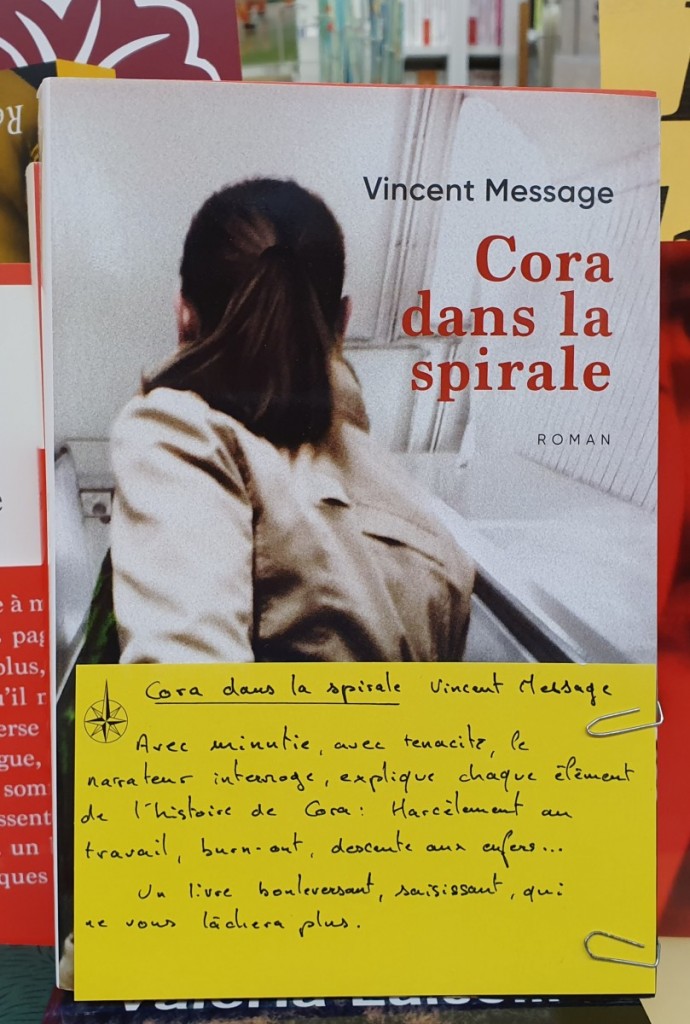 Vincent Message
Cora
dans la
spirale
ROMAN
Cora dans la spirale Vincent Message
Avec minutie, avec tenacité, le
narrateur interroge, explique chaque élément
de l'histoire de Cora : Harcèlement au
travail, burn-out, descente aux enfers...
Un livre bouleversant, saisissant, qui
ne vous lâchera plus.
e à m
, pag
plus,
u'il r
erse
gue,
som
ssent
, un
ques